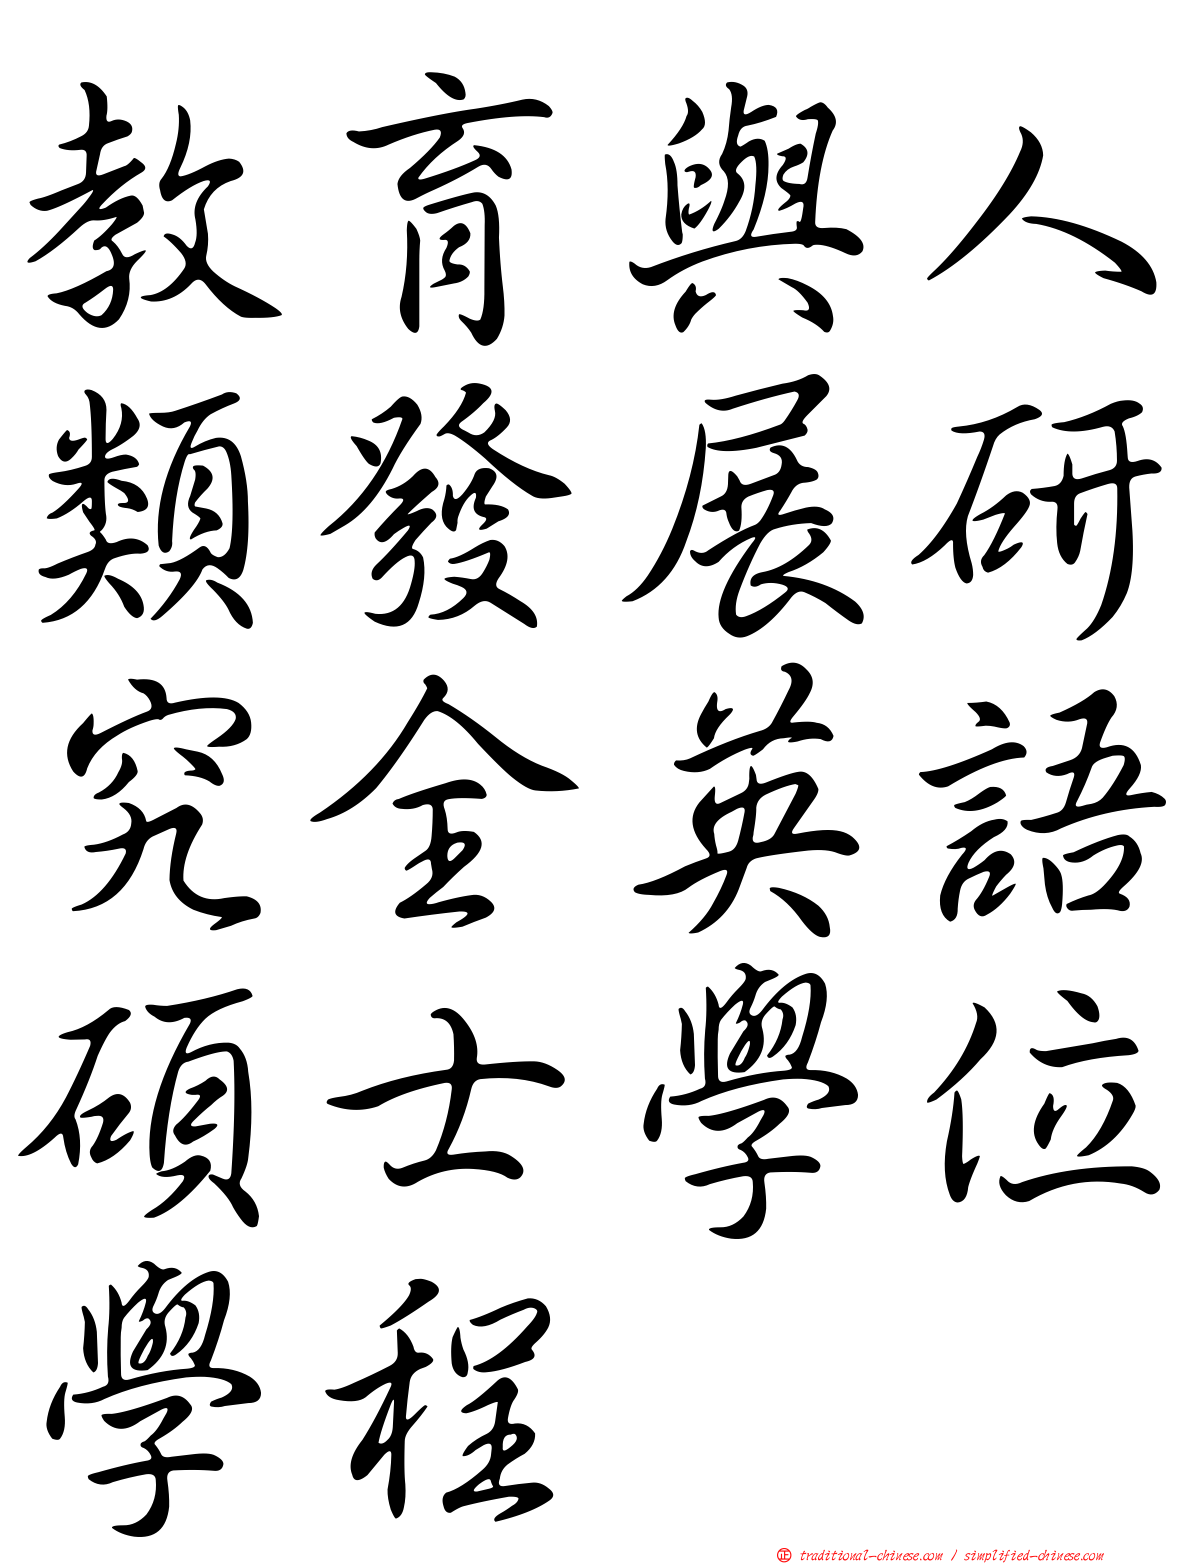 教育與人
類發展研
究全英語
碩士學位
學程
㊣ traditional-chinese.com / simplified-chinese.com